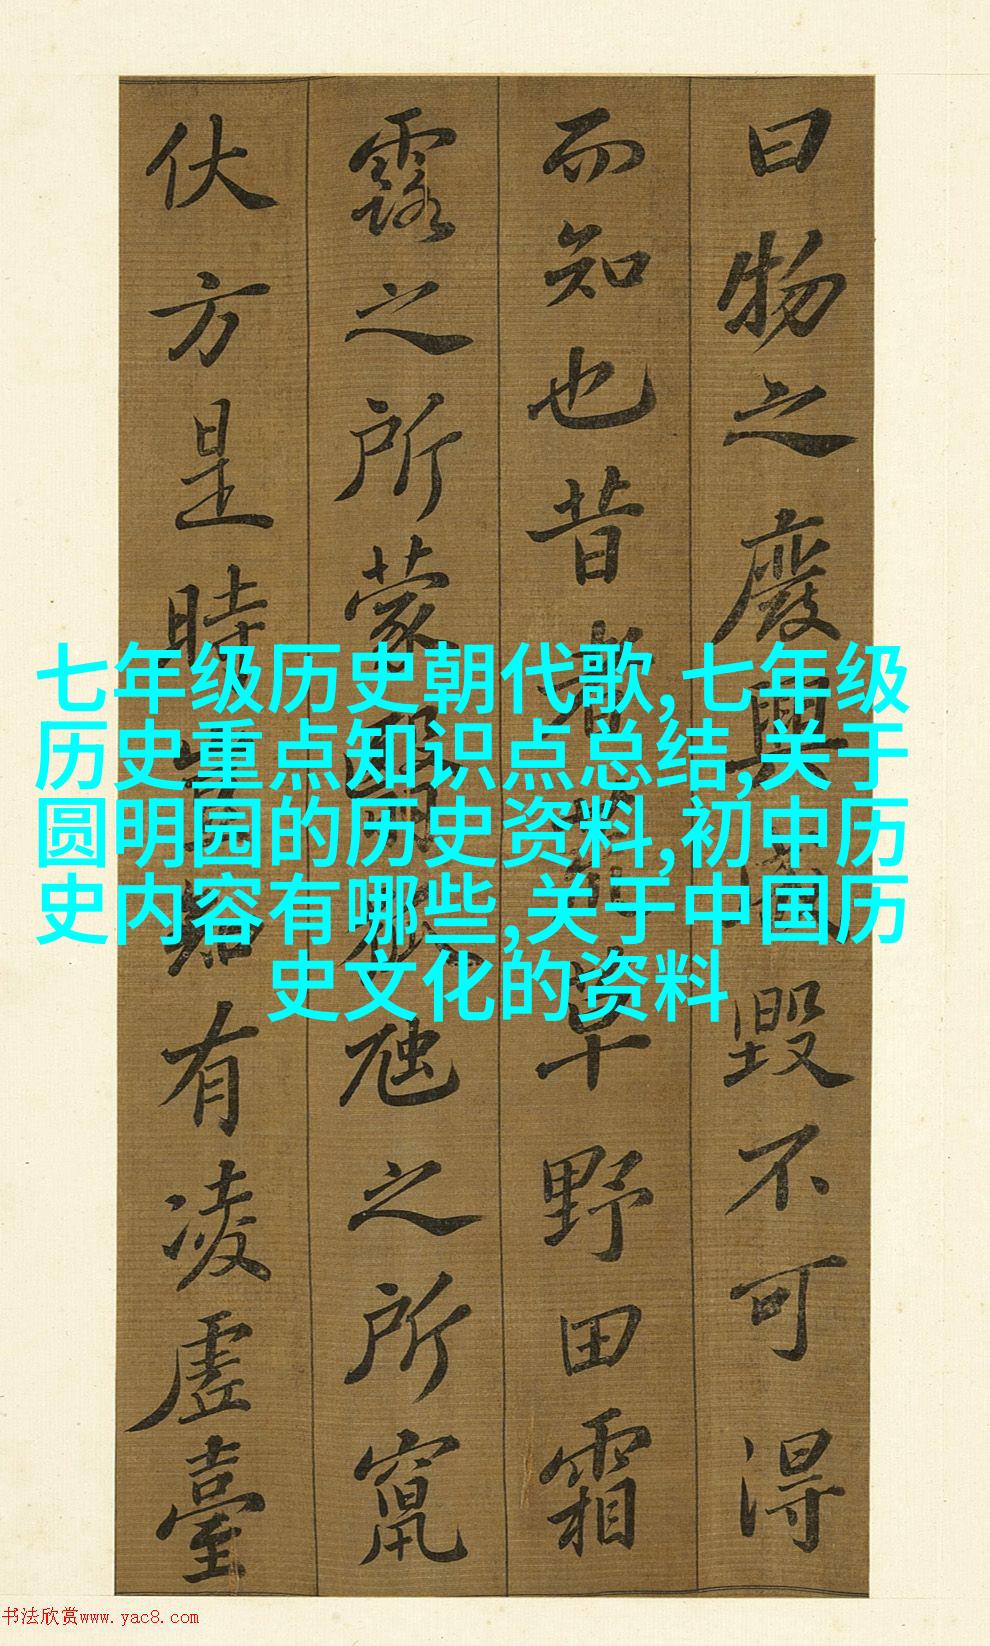 曰物之廢興毀不可得
而知也昔者草野田霜
露之所蒙翳虺之所竄
伏方是時有凌虛臺
七年级历史朝代歌,七年级
历史重点知识点总结,关于
圆明园的历史资料,初中历
史内容有哪些,关于中国历
史文化的资料
书法欣赏www.yac8.com